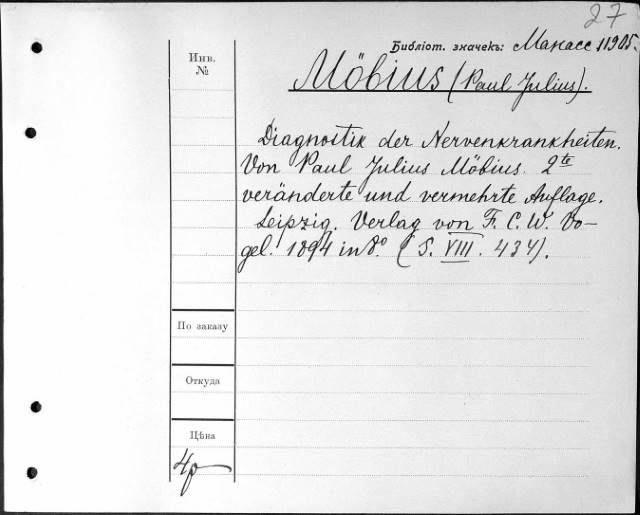 27
Библіот. значекъ: Манасс 11905.
Инв.
№
Möbius (Paul Julius).
Diagnostik der Nervenkrankheiten.
Von Paul Julius Möbius. 2te
veränderte und vermehrte Auflage.
Leipzig. Verlag von F. C. W. Vo-
gel. 1894 in 8º. (S. VIII. 434).
По заказу
Откуда
Цѣна
4р